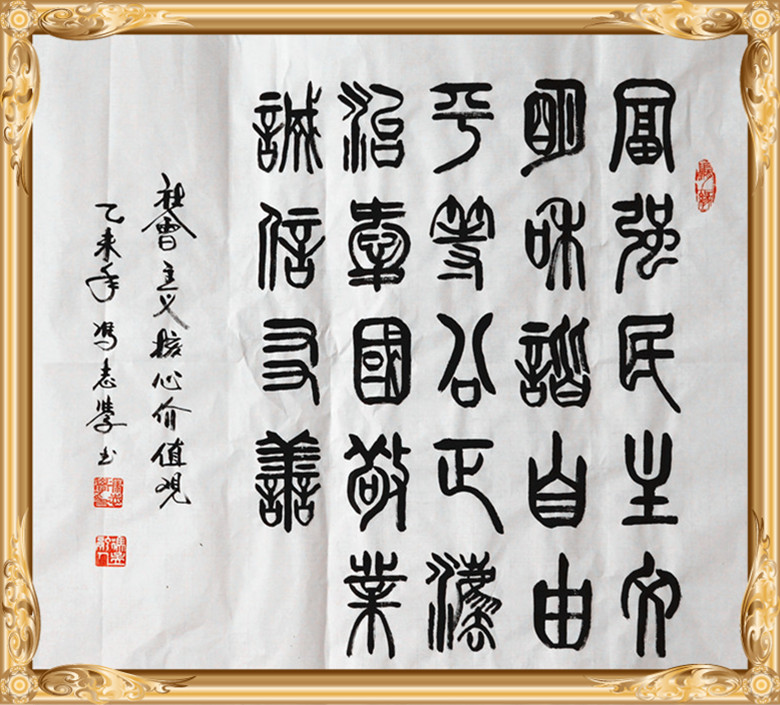 富强民主文
明和諧自由
平等公正灋
治愛國敬業
誠信友善
社會主义核心价值观
乙未年冯志书